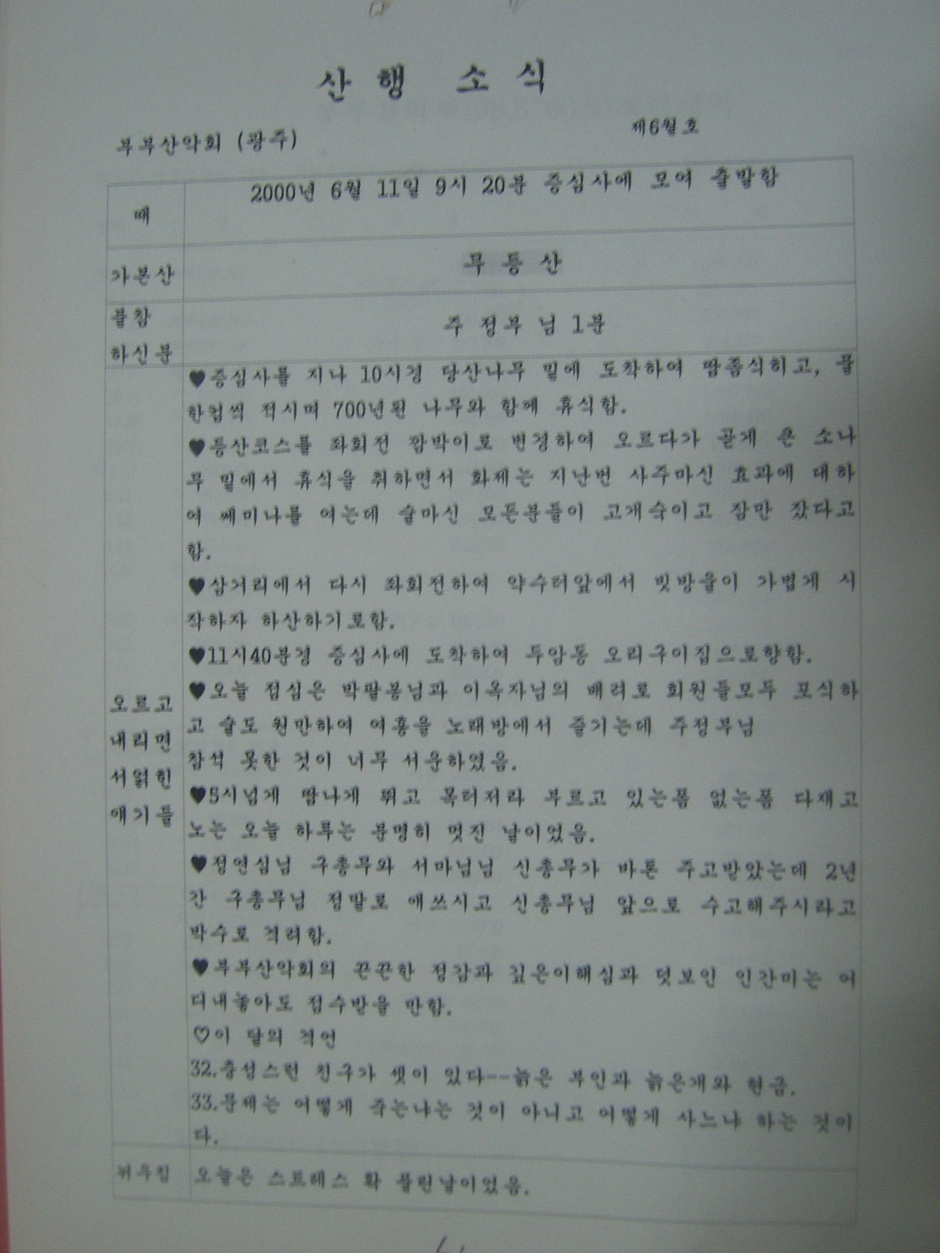 산 행 소 식
부부산악회 (광주)
제6월호
때
2000년 6월 11일 9시 20분 증심사에 모여 출발함
가본산
무 등 산
불참
하신분
주 정부 님 1분
♥증심사를 지나 10시경 당산나무 밑에 도착하여 땀좀식히고, 물
한컵씩 적시며 700년된 나무와 함께 휴식함.
♥등산코스를 좌회전 깜박이로 변경하여 오르다가 곧게 큰 소나
무 밑에서 휴식을 취하면서 화제는 지난번 사주마신 효과에 대하
여 쎄미나를 여는데 술마신 모든분들이 고개숙이고 잠만 잤다고
함.
♥삼거리에서 다시 좌회전하여 약수터앞에서 빗방울이 가볍게 시
작하자 하산하기로함.
♥11시40분경 증심사에 도착하여 두암동 오리구이집으로향함.
♥오늘 점심은 박팔봉님과 이옥자님의 배려로 회원들모두 포식하
고 술도 원만하여 여흥을 노래방에서 즐기는데 주정부님
참석 못한 것이 너무 서운하였음.
♥5시넘게 땀나게 뛰고 목터져라 부르고 있는폼 없는폼 다재고
노는 오늘 하루는 분명히 멋진 날이었음.
♥정연심님 구총무와 서마님님 신총무가 바톤 주고받았는데 2년
간 구총무님 정말로 애쓰시고 신총무님 앞으로 수고해주시라고
박수로 격려함.
♥부부산악회의 끈끈한 정감과 깊은이해심과 덧보인 인간미는 어
디내놓아도 점수받을 만함.
♡이 달의 격언
32.충성스런 친구가 셋이 있다--늙은 부인과 늙은개와 현금.
33.문제는 어떻게 죽는냐는 것이 아니고 어떻게 사느냐 하는 것이
다.
오르고
내리면
서얽힌
얘기들
뉘우침
오늘은 스트레스 확 풀린날이었음.